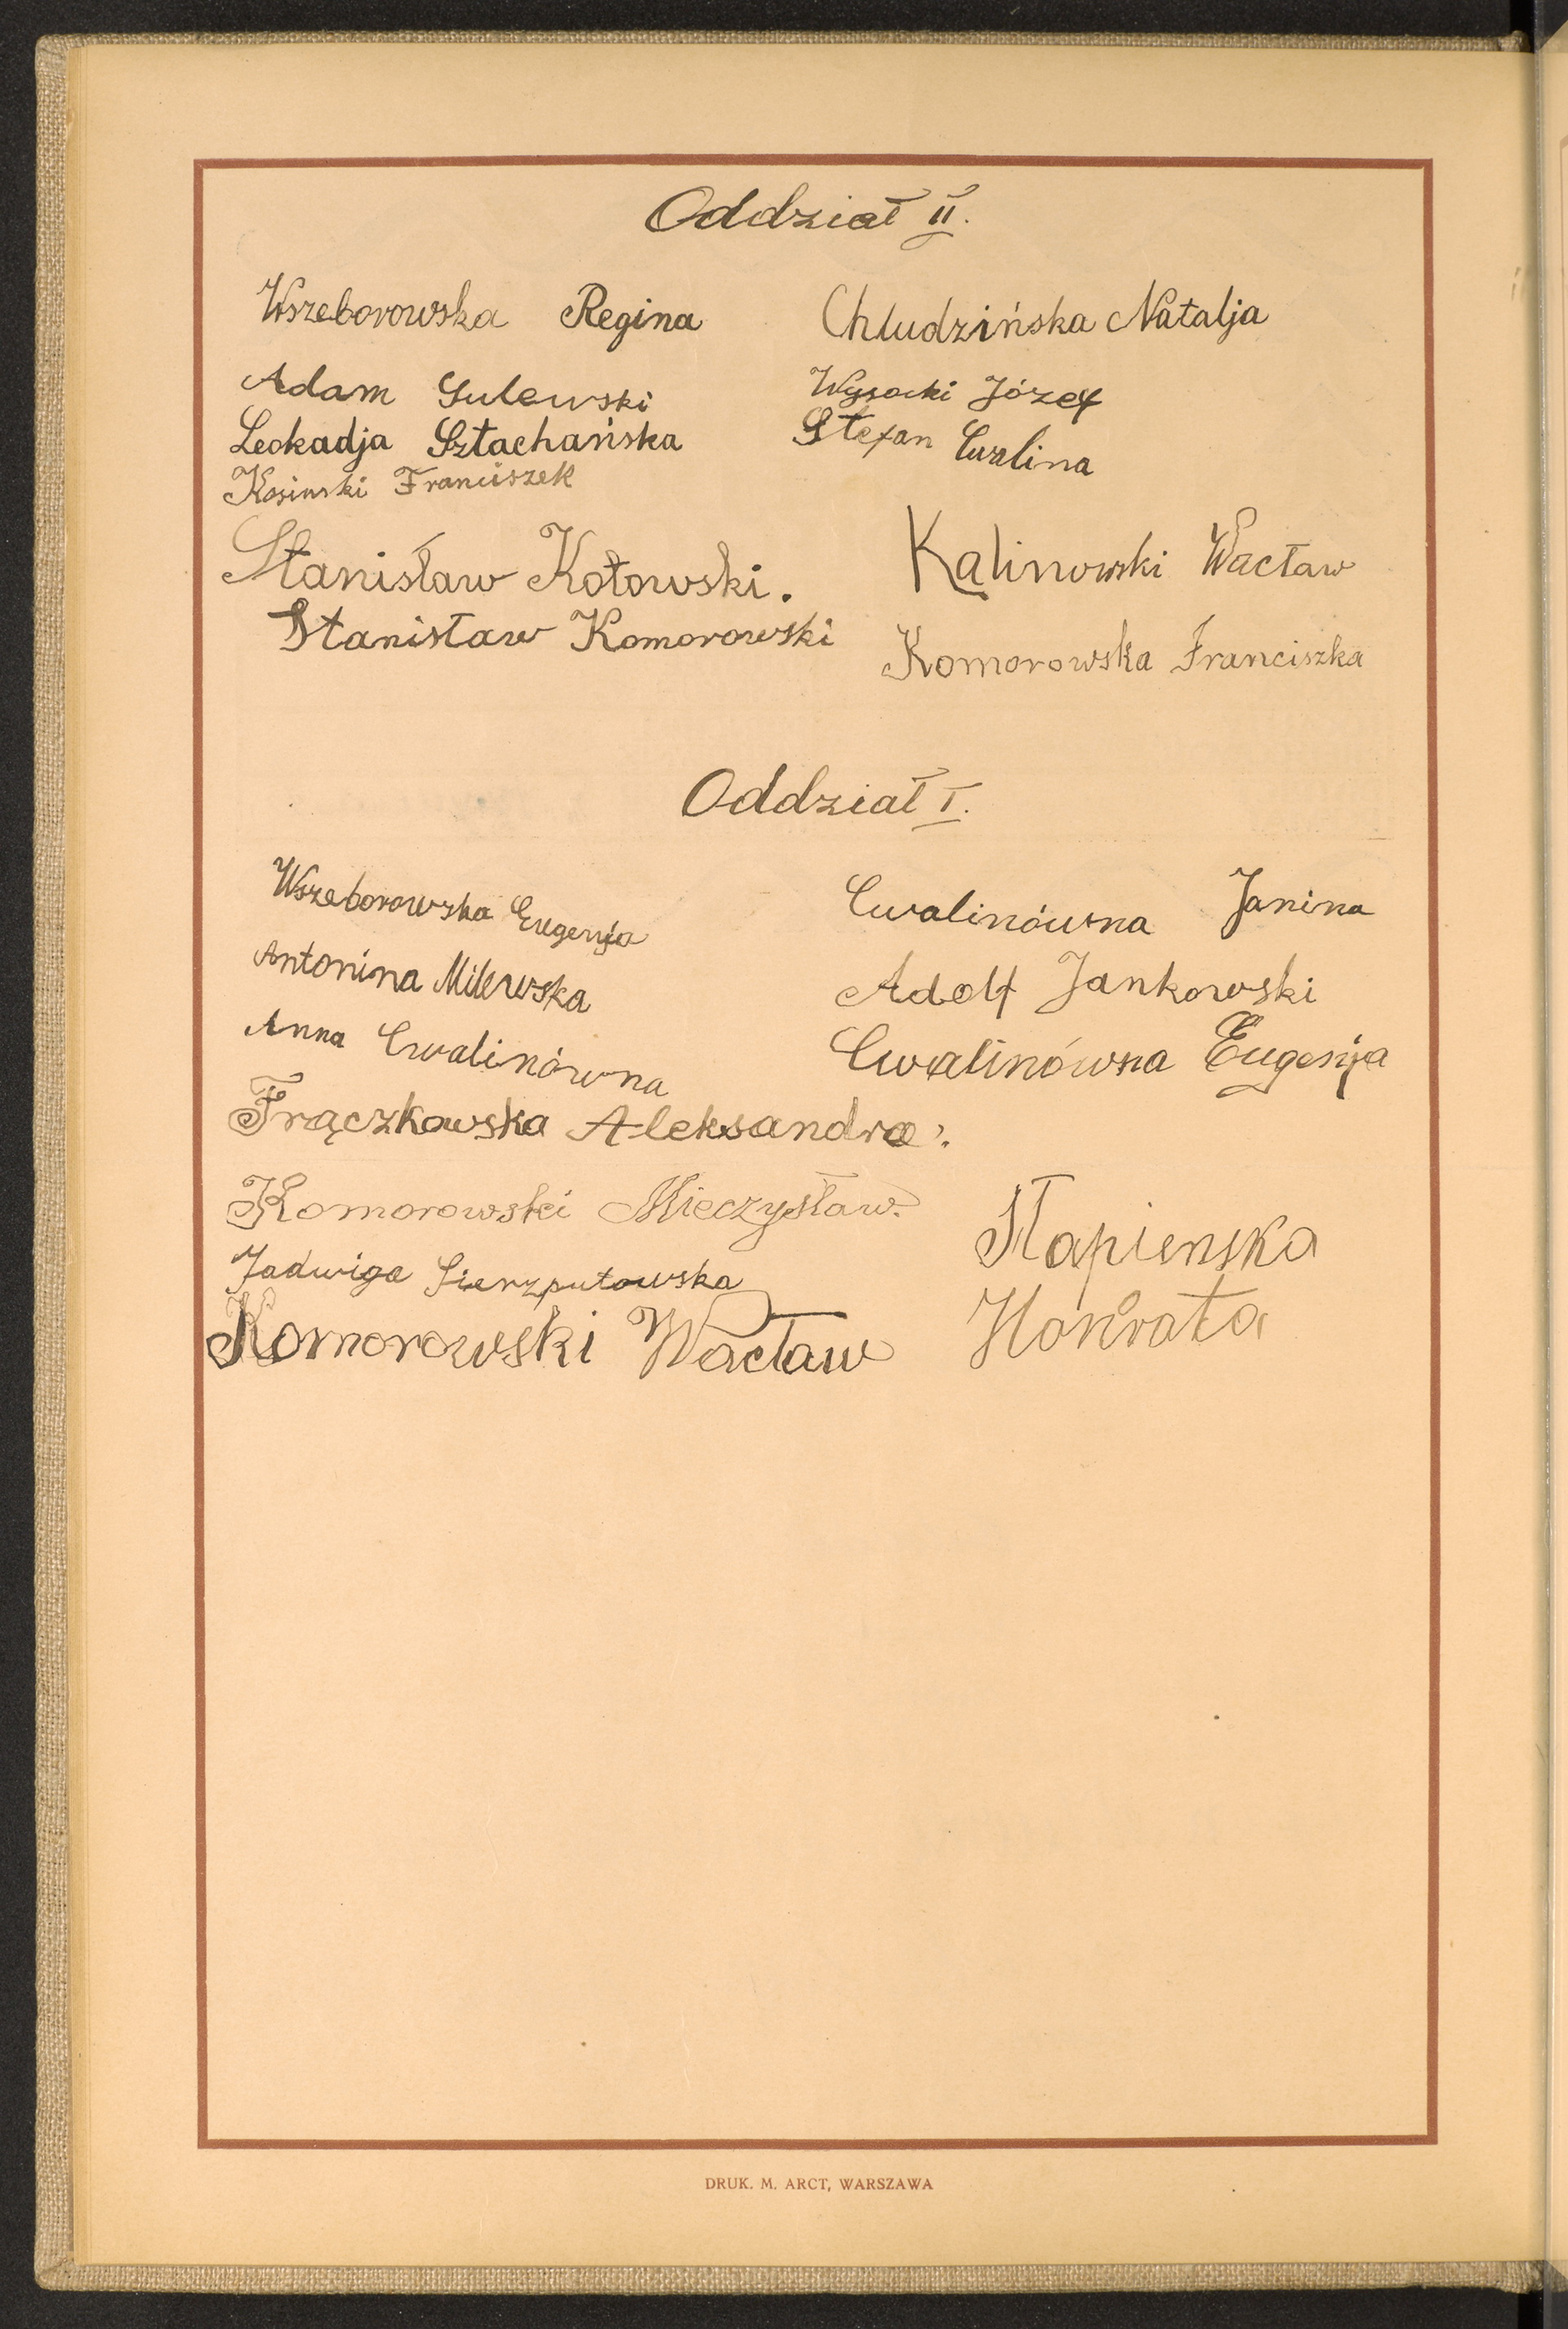 Oddział II.
Wszeborowska Regina
Adam Gulewski
Leokadja Sztachańska
Kosinski Franciszek
Stanisław Kotowski.
Stanisław Komorowski
Chludzińska Natalja
Wysocki Józef
Stefan Cwalina
Kalinowski Wacław
Komorowska Franciszka
Oddział I.
Wszeborowska Eugenja
Antonina Milewska
Anna Cwalinówna
Frączkowska Aleksandra.
Komorowski Mieczysław.
Jadwiga Sierzputowska
Komorowski Wacław
Cwalinówna Janina
Adolf Jankowski
Cwalinówna Eugenja
Honorata
DRUK. M. ARCT, WARSZAWA